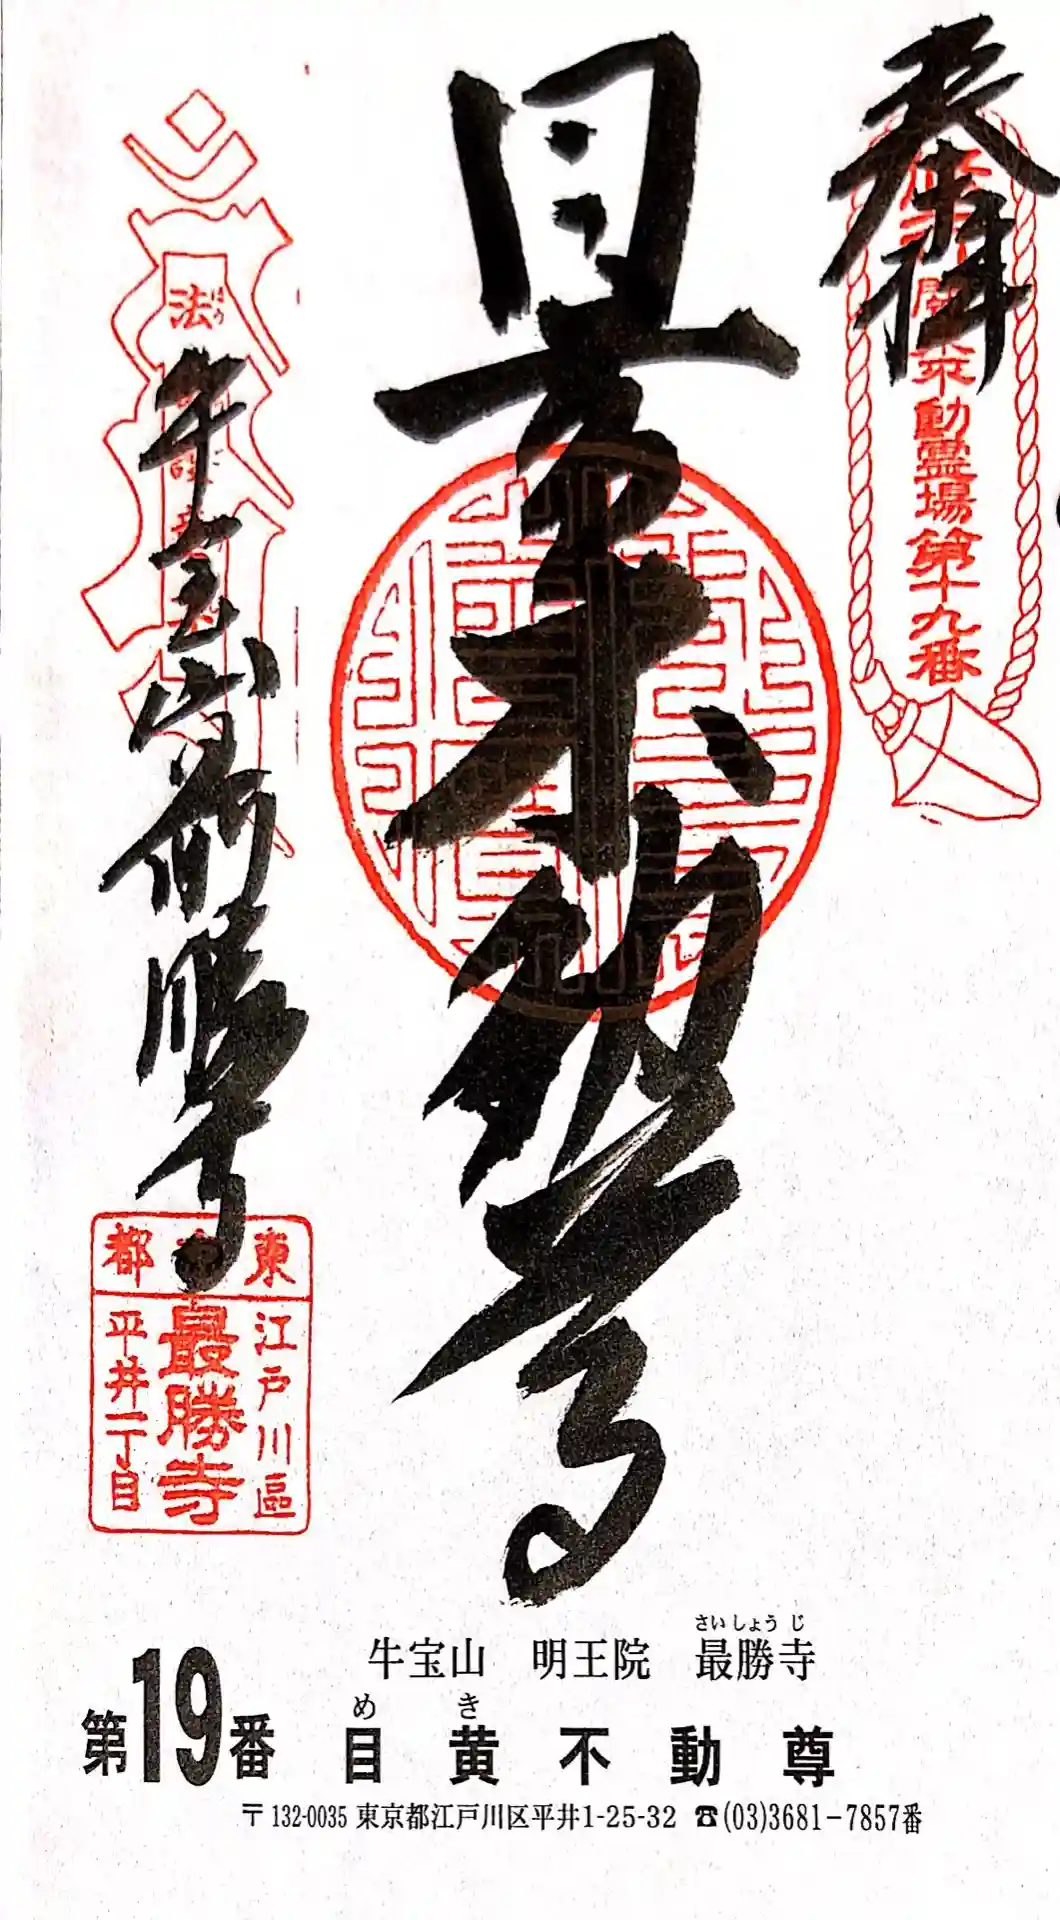 奉拝
関東
不動霊場第十九番
目黄不動尊
法
ほう
牛宝山
最勝寺
東京都
江戸川區
最勝寺
平井一丁目
さいしょうじ
牛宝山 明王院 最勝寺
めき
第19番 目黄不動尊
〒132-0035 東京都江戸川区平井1-25-32 ☎(03)3681-7857番